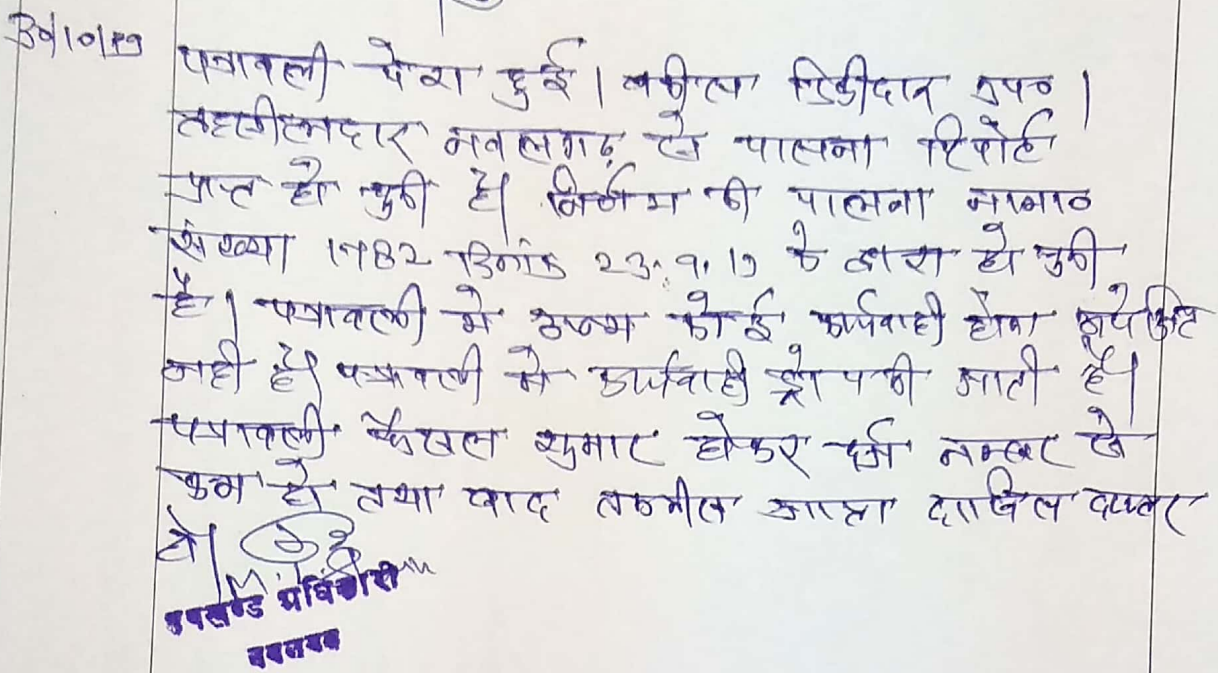 30/10/19
पत्रावली पेश हुई। वकील डिक्रीदार उप०।
तहसीलदार नवलगढ़ से पालना रिपोर्ट
प्राप्त हो चुकी है। निर्णय की पालना नामा०
संख्या 1782 दिनांक 23.9.19 के द्वारा हो चुकी
है। पत्रावली में अन्य कोई कार्यवाही होना अपेक्षित
नही है। पत्रावली में कार्यवाही ड्रोप की जाती है।
पत्रावली फैसल शुमार होकर दर्ज नम्बर से
कम हो तथा बाद तकमील दाखिल दफ्तर
हो।
उपखण्ड अधिकारी
नवलगढ